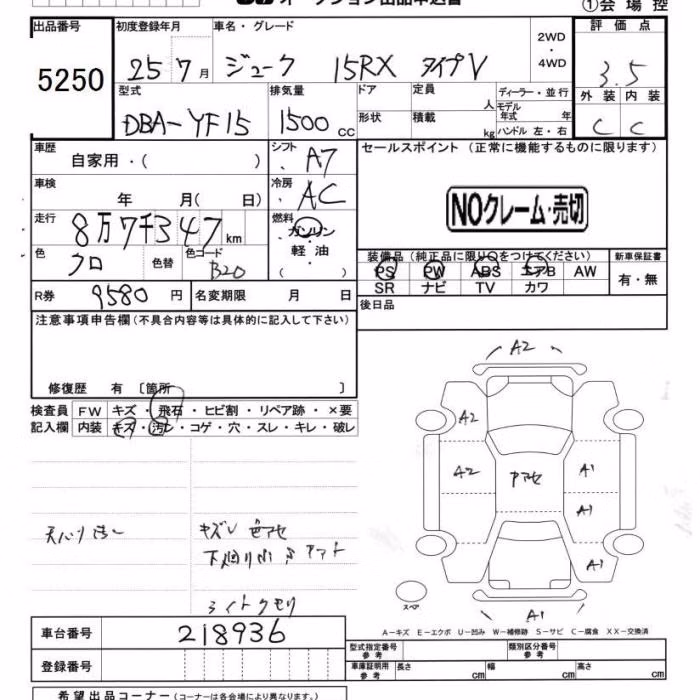 オークション出品申込書
①会場控
出品番号 初度登録年月 車名・グレード 2WD・4WD 評価点
5250 25 7月 ジューク 15RX タイプV 3.5
型式 排気量 ドア 定員 人 ディーラー・並行 外装 内装
DBA-YF15 1500cc 形状 積載 kg モデル年式 年 ハンドル 左・右 C C
車歴 自家用・( ) シフト A7 セールスポイント(正常に機能するものに限ります)
車検 年 月( 日) 冷房 AC NOクレーム・売切
走行 8万7千347km 燃料 ガソリン・軽油 ( )
色 クロ 色替 色コード B20 装備品(純正品に限り○をつけてください) 新車保証書
PS PW ABS エアB AW 有・無
SR ナビ TV カワ
R券 9580円 名変期限 月 日 後日品
注意事項申告欄(不具合内容等は具体的に記入して下さい)
修復歴 有〔箇所 〕
検査員 FW キズ・飛石・ヒビ割・リペア跡・×要
記入欄 内装 キズ・汚レ・コゲ・穴・スレ・キレ・破レ
A2
A2
A2 A1
A1
A1
キズU 色アセ
ライトクモリ
スペア
A1
A-キズ E-エクボ U-凹み W-補修跡 S-サビ C-腐食 XX-交換済
車台番号 218936 型式指定番号 参考 類別区分番号 参考
登録番号 車庫証明用 参考 長さ cm 幅 cm 高さ cm
希望出品コーナー(コーナーは各会場により異なります。)